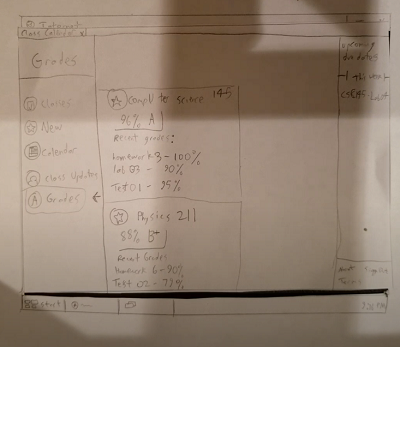 Internet
Class Calendar x
Grades
Classes
New
Calendar
Class Updates
A Grades
Computer science 145
96% A
Recent grades:
homework 3 - 100%
lab 03 - 90%
Test 01 - 95%
Physics 211
88% B+
Recent Grades
Homework 6 - 90%
Test 02 - 79%
upcoming
due dates
this week
Start